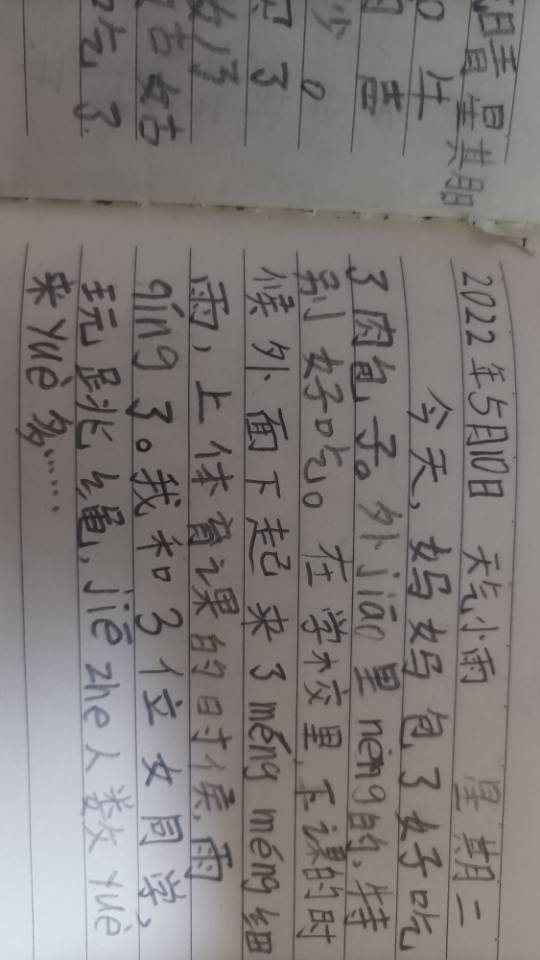 晴 星期
牛
。
了
了
吃了
2022年5月10日 天气小雨 星期二
今天,妈妈包了好吃
了肉包子。外jiāo里nèng的,特
别好吃。在学校里,下课的时
候外面下起来了méng méng细
雨,上体育课的时候,雨
qíng了。我和3位女同学,
玩跳绳,jiē zhe人数yuè
来yuè多……